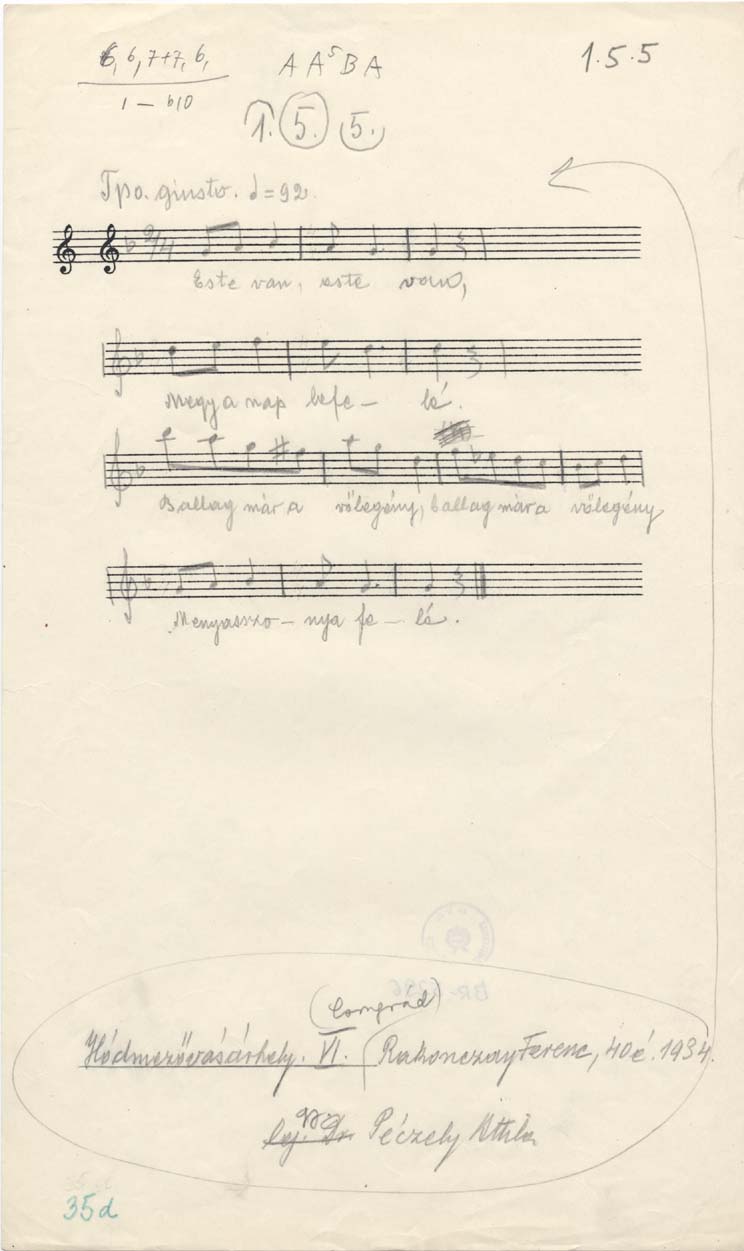 6, 6, 7+7, 6, A A⁵ B A 1.5.5
1 – b10
1. 5. 5.
Tpo. giusto. ♩=92.
2/4
Este van, este van,
Megy a nap lefe – lé.
Ballag már a vőlegény, ballag már a vőlegény
Menyasszo – nya fe – lé.
(Csongrád)
Hódmezővásárhely. VI. Rakonczay Ferenc, 40 é. 1934.
Péczely Attila
35d